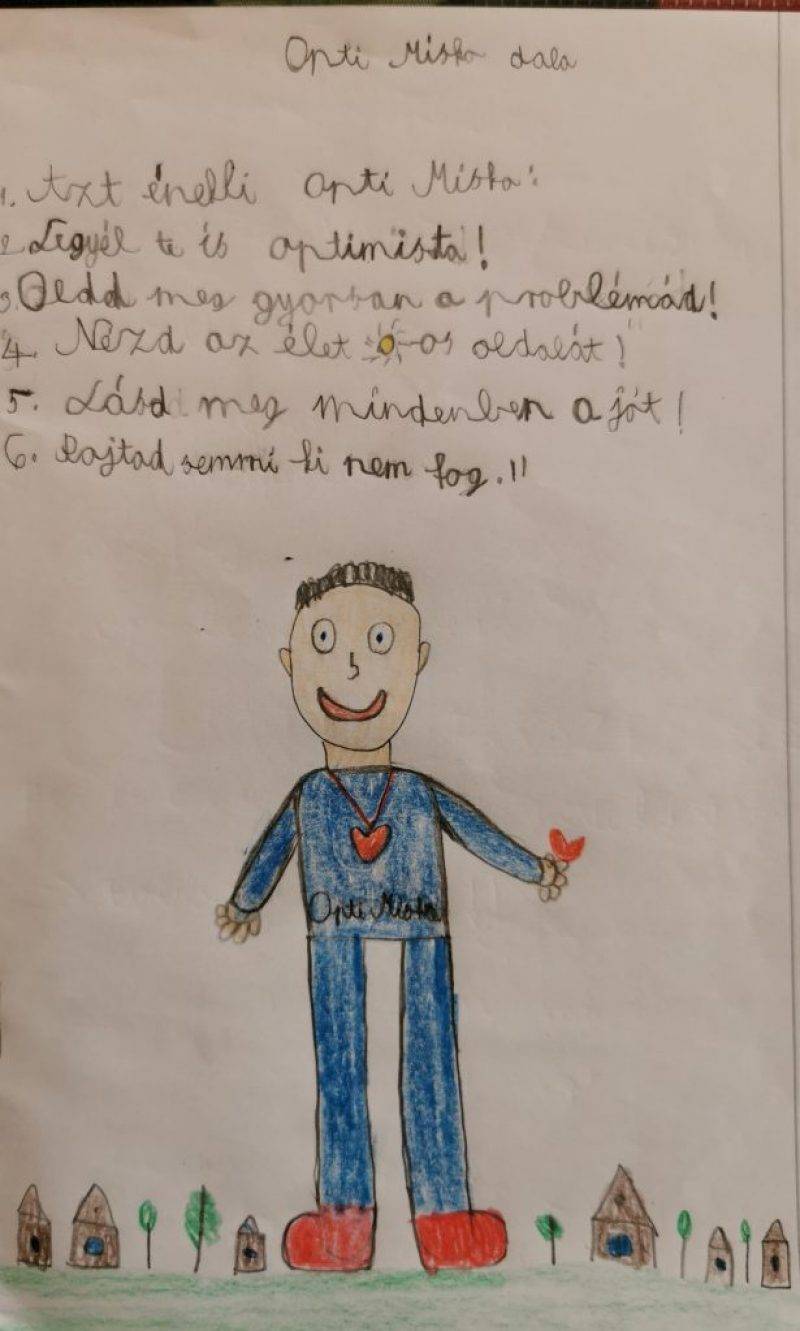 Opti Miska dala
1. Azt énekli Opti Miska:
2. Legyél te is optimista!
3. Oldd meg gyorsan a problémád!
4. Nézd az élet ☀-os oldalát!
5. Lásd meg mindenben a jót!
6. Rajtad semmi ki nem fog.!!
Opti Miska